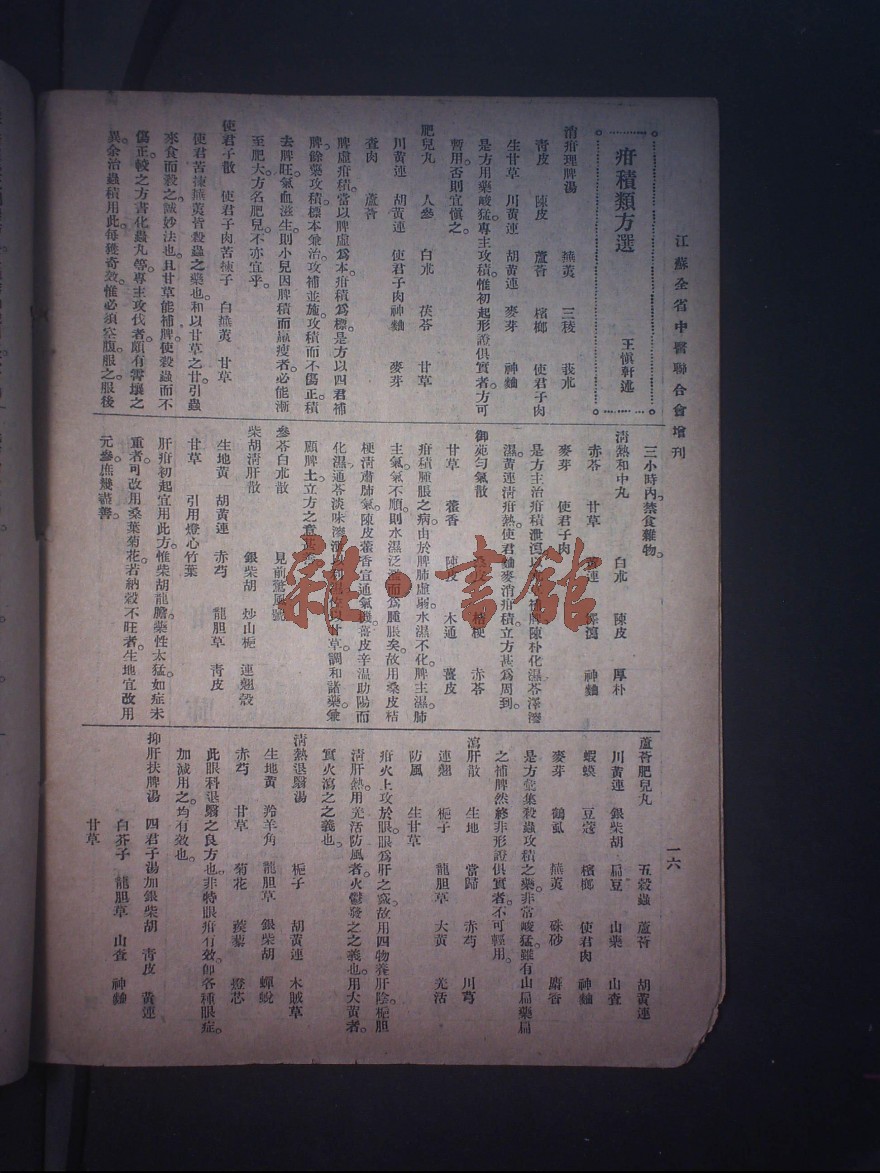 江蘇全省中醫聯合會增刊
一六
疳積類方選
王愼軒述
消疳理脾湯　蕪荑　三稜　莪朮
青皮　陳皮　蘆薈　檳榔　使君子肉
生甘草　川黃連　胡黃連　麥芽　神麯
是方用藥峻猛。專主攻積。惟初起形證俱實者。方可
暫用。否則宜愼之。
肥兒丸　人參　白朮　茯苓　甘草
川黃連　胡黃連　使君子肉　神麯　麥芽
查肉　蘆薈
脾虛疳積。當以脾虛爲本。疳積爲標。是方以四君補
脾。餘藥攻積。標本兼治。攻補並施。攻積而不傷正。積
去脾旺。氣血滋生。則小兒因脾積而羸瘦者。必能漸
至肥大。方名肥兒。不亦宜乎。
使君子散　使君子肉　苦楝子　白蕪荑　甘草
使君苦楝蕪荑。皆殺蟲之藥也。和以甘草之甘。引蟲
來食而殺之。誠妙法也。且甘草能補脾。使殺蟲而不
傷正。較之方書化蟲丸等。專主攻伐者。頗有霄壤之
異。余治蟲積用此。每獲奇效。惟必須空腹服之。服後
三小時內。禁食雜物。
淸熱和中丸　白朮　陳皮　厚朴
赤苓　甘草　黃連　澤瀉　神麯
麥芽　使君子肉
是方主治疳積泄瀉。以朮草補脾。陳朴化濕。苓澤滲
濕。黃連淸疳熱。使君麯麥消疳積。立方甚爲周到。
御苑勻氣散　桑皮　桔梗　赤苓
甘草　藿香　陳皮　木通　薑皮
疳積腫脹之病。由於脾肺虛弱。水濕不化。脾主濕。肺
主氣。氣不順。則水濕泛溢而爲腫脹矣。故用桑皮桔
梗。淸肅肺氣。陳皮藿香。宣通氣機。薑皮辛温。助陽而
化濕。通苓淡味滲泄。以利水。佐以甘草。調和諸藥。兼
顧脾土。立方之意
參苓白朮散　見前驚風號
柴胡淸肝散　銀柴胡　炒山梔　連翹殼
生地黃　胡黃連　赤芍　龍胆草　青皮
甘草　引用燈心竹葉
肝疳初起。宜用此方。惟柴胡龍膽。藥性太猛。如症未
重者。可改用桑葉菊花。若納穀不旺者。生地宜改用
元參。庶幾盡善。
蘆薈肥兒丸　五穀蟲　蘆薈　胡黃連
川黃連　銀柴胡　扁豆　山藥　山查
蝦蟆　豆蔻　檳榔　使君肉　神麯
麥芽　鶴虱　蕪荑　硃砂　麝香
是方彙集殺蟲攻積之藥。非常峻猛。雖有山藥扁
之補脾。然終非形證俱實者。不可輕用。
瀉肝散　生地　當歸　赤芍　川芎
連翹　梔子　龍胆草　大黃　羌活
防風　生甘草
疳火上攻於眼。眼爲肝之竅。故用四物養肝陰。梔胆
淸肝熱。用羌活防風者。火鬱發之之義也。用大黃者。
實火瀉之之義也。
淸熱退翳湯　梔子　胡黃連　木賊草
生地黃　羚羊角　龍胆草　銀柴胡　蟬蛻
赤芍　甘草　菊花　蒺藜　燈芯
此眼科退翳之良方也。非特眼疳有效。卽各種眼症。
加減用之。均有效也。
抑肝扶脾湯　四君子湯加銀柴胡　青皮　黃連
白芥子　龍胆草　山查　神麯
甘草
雜·書館